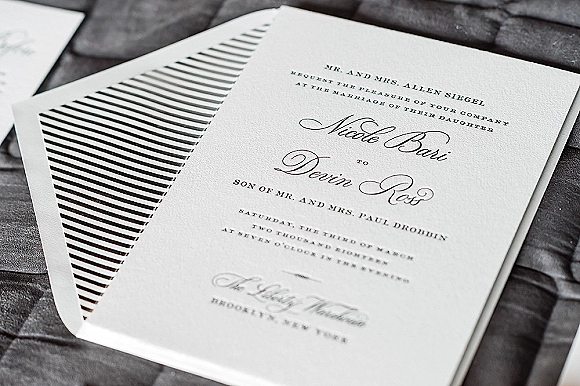 MR. AND MRS. ALLEN SIEGEL
REQUEST THE PLEASURE OF YOUR COMPANY
AT THE MARRIAGE OF THEIR DAUGHTER
Nicole Bari
TO
Devin Ross
SON OF MR. AND MRS. PAUL DROBBIN
SATURDAY, THE THIRD OF MARCH
TWO THOUSAND EIGHTEEN
AT SEVEN O'CLOCK IN THE EVENING
The Liberty Warehouse
BROOKLYN, NEW YORK